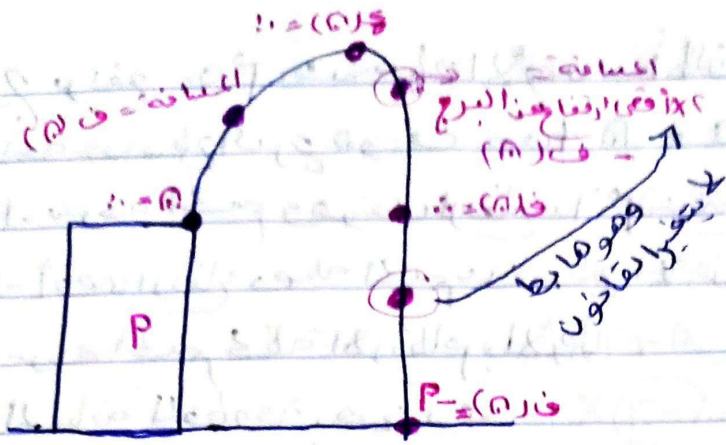 ع(ن) = ٠
المسافة = ف(ن)
المسافة =
٢×أقصى ارتفاع عن البرج
- ف(ن)
ن = ٠
ف(ن) = ٠
وهو هابط
لا يتغير القانون
P
ف(ن) = -P